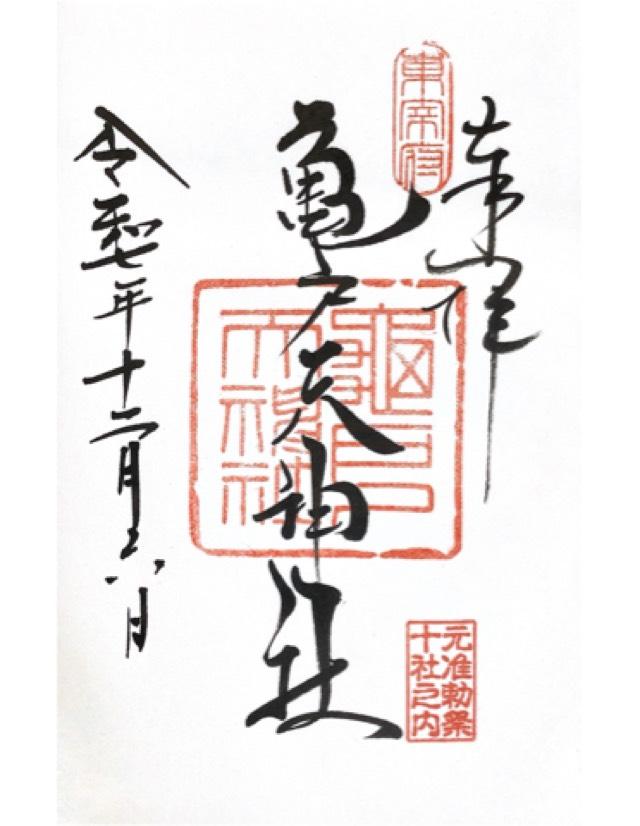 奉拝
東宰府
亀戸天神社
龜戸
天神社
元准勅祭
十社之内
令和七年十二月六日